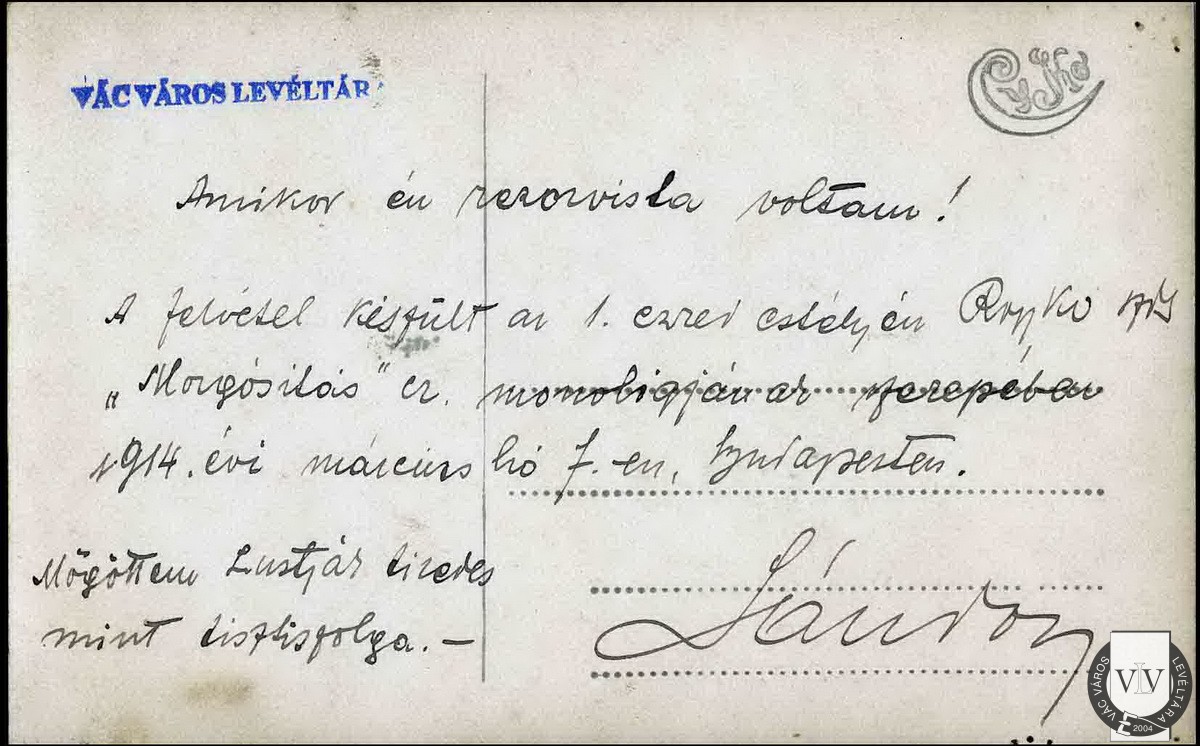 VÁC VÁROS LEVÉLTÁR
Amikor én rezervista voltam!
A felvétel készült az 1. ezred estélyén
"Mozgósítás" cz. monológjának szerepében
1914. évi március hó 7.-én, Budapesten.
Mögöttem Lustjár tizedes
mint tisztiszolga. —
Sándor
VÁC VÁROS LEVÉLTÁRA
VLV
2004